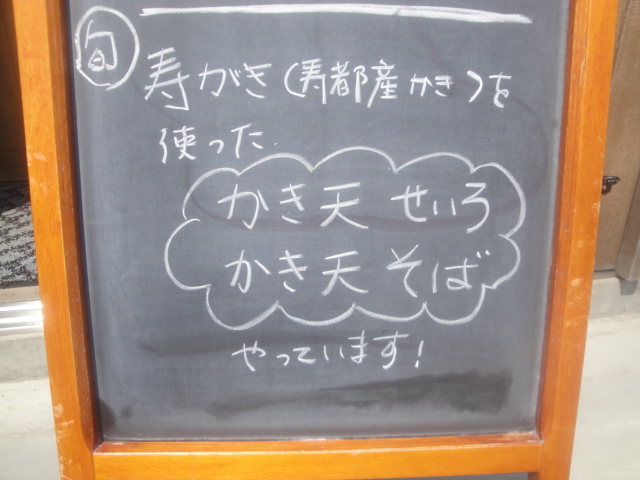 旬 寿がき(寿都産かき)を
使った
かき天 せいろ
かき天 そば
やっています!